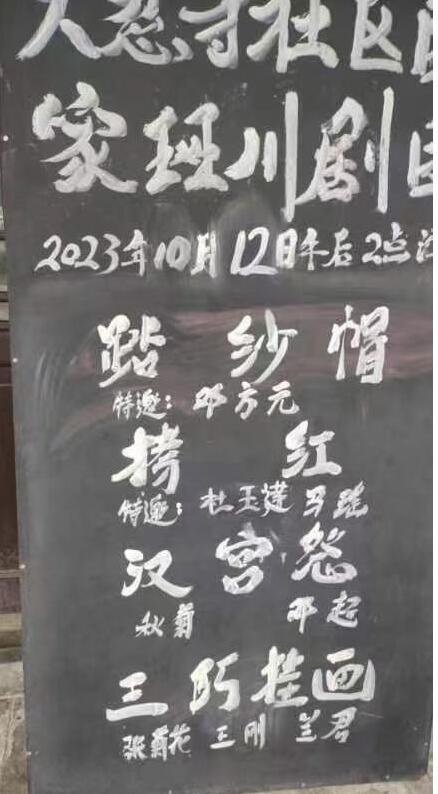 大慈寺社区
家班川剧
2023年10月12日午后2点
跕纱帽
特邀：邓方元
拷红
特邀：杜玉建 马瑶
汉宫怨
秋菊 邓起
三巧挂画
张菊花 王刚 兰君